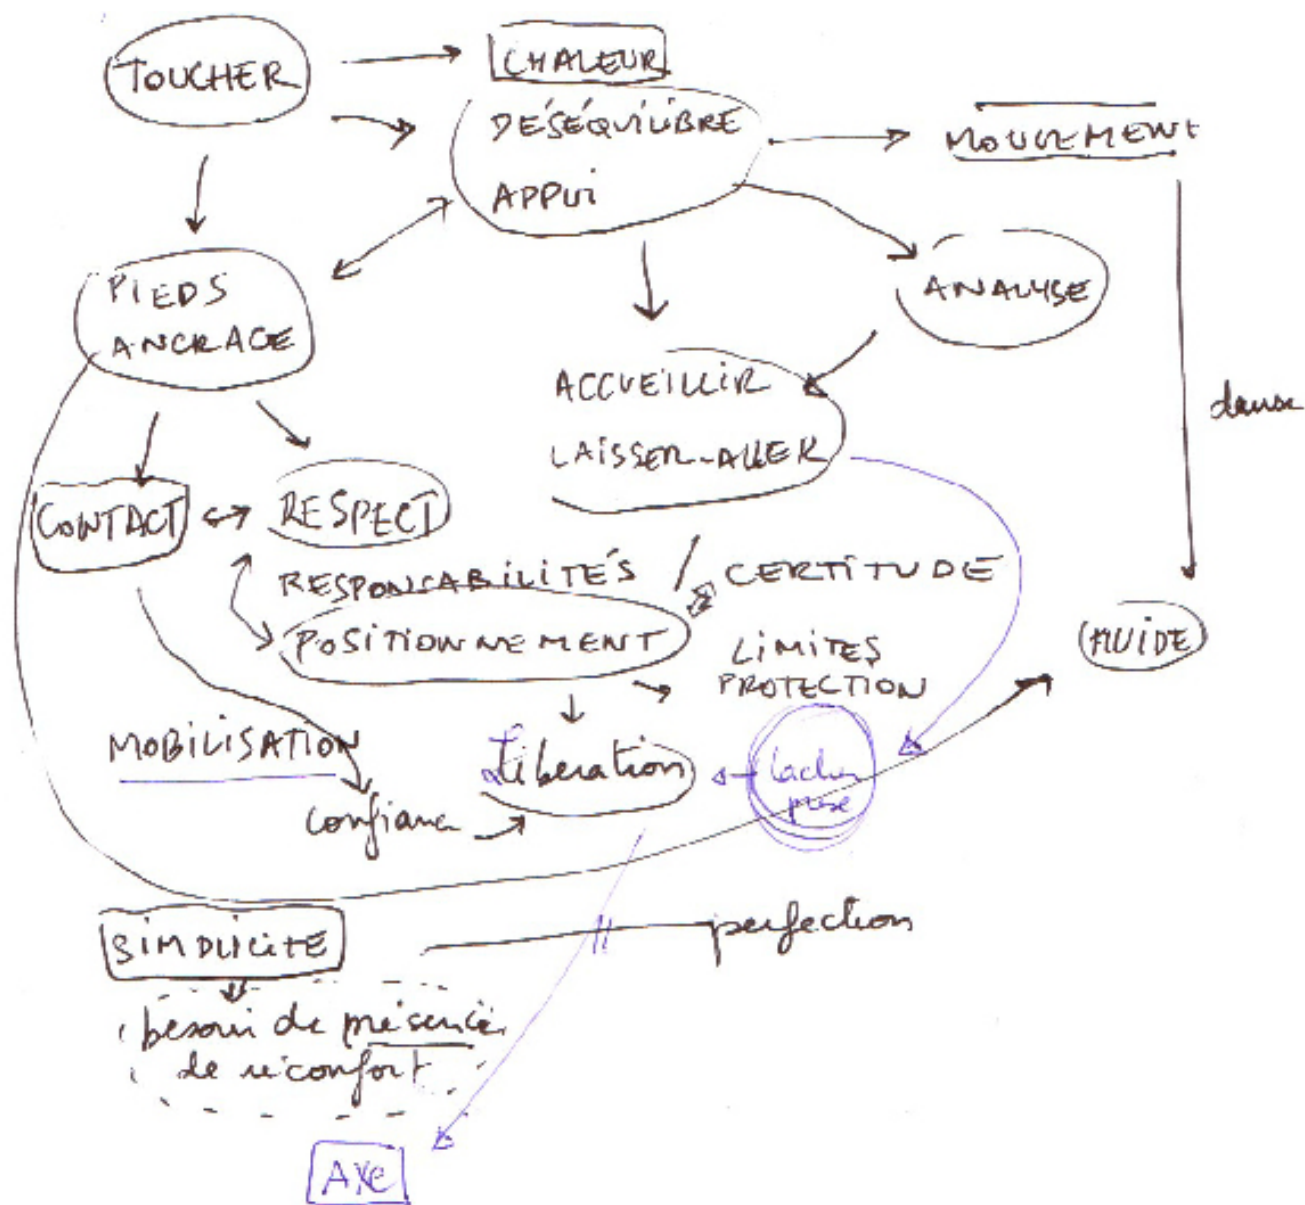 TOUCHER
CHALEUR
DÉSÉQUILIBRE
APPUI
MOUVEMENT
PIEDS
ANCRAGE
ANALYSE
ACCUEILLIR
LAISSER-ALLER
danse
CONTACT
RESPECT
RESPONSABILITÉS
CERTITUDE
POSITIONNEMENT
FLUIDE
LIMITES
PROTECTION
MOBILISATION
Libération
lacher
prise
confiance
SIMPLICITE
perfection
besoin de présence
de réconfort
AXE